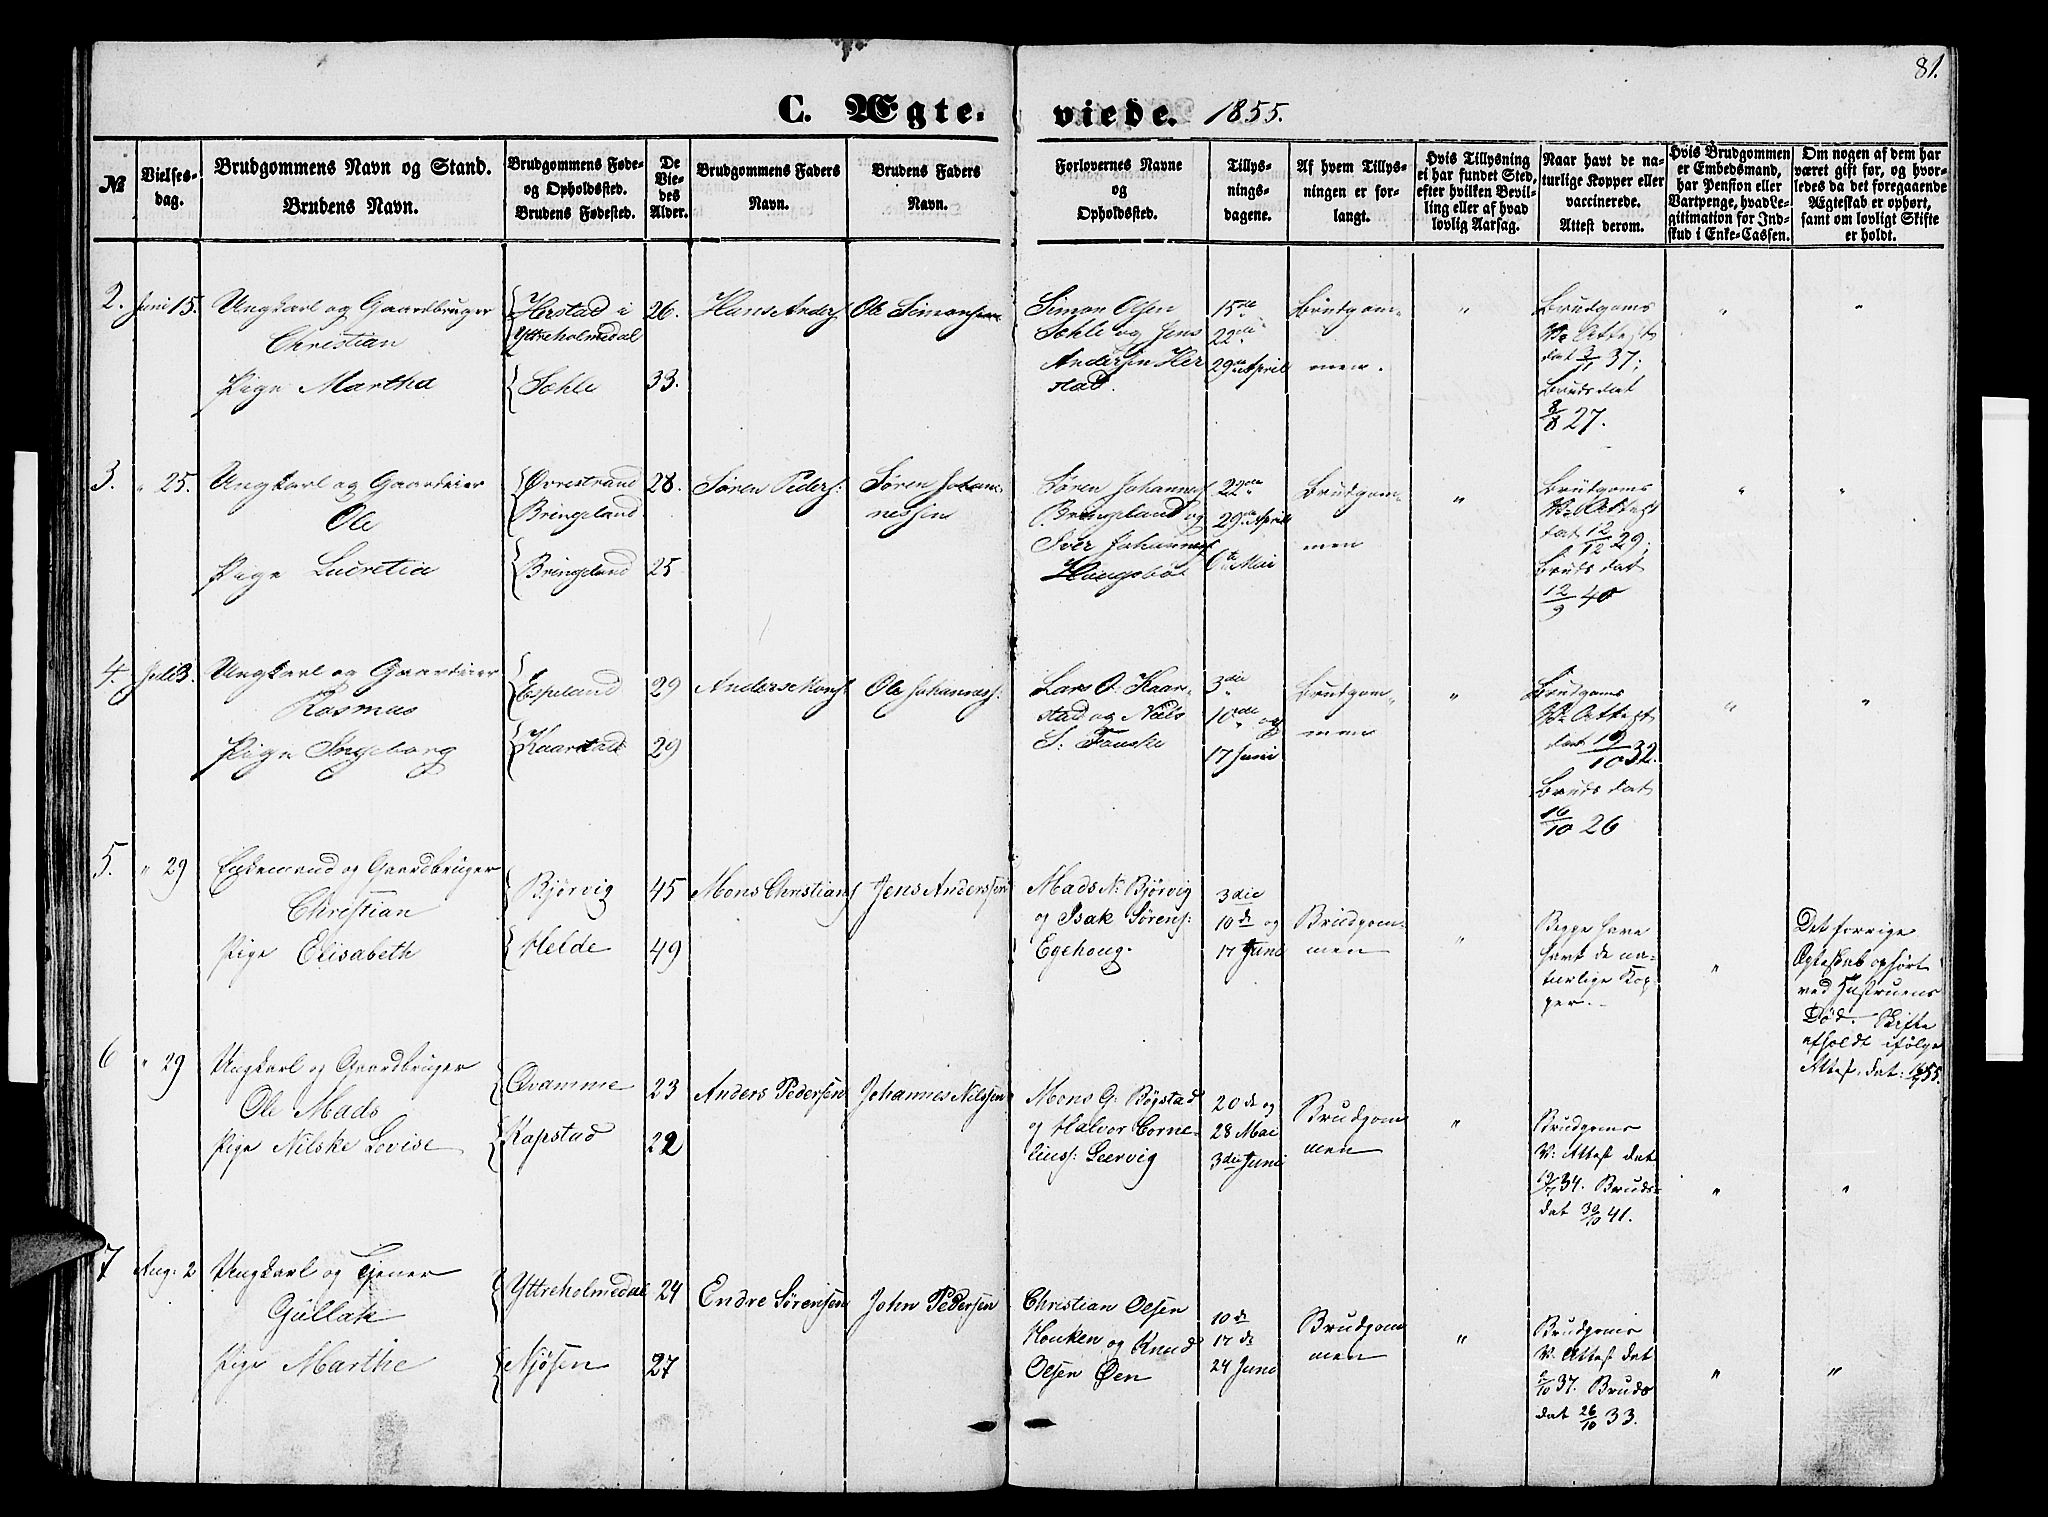 81.
C. Ægte-
viede. 1855.
№
Vielses-
dag.
Brudgommens Navn og Stand.
Brudens Navn.
Brudgommens Føde-
og Opholdssted.
Brudens Fødested.
De
Vie-
des
Alder.
Brudgommens Faders
Navn.
Brudens Faders
Navn.
Forlovernes Navne
og
Opholdssted.
Tillys-
nings-
dagene.
Af hvem Tillys-
ningen er for-
langt.
Hvis Tillysning
ei har fundet Sted,
efter hvilken Bevil-
ling eller af hvad
lovlig Aarsag.
Naar havt de na-
turlige Kopper eller
vaccinerede.
Attest derom.
Hvis Brudgommen
er Embedsmand,
har Pension eller
Vartpenge, hvad Le-
gitimation for Ind-
skud i Enke-Cassen.
Om nogen af dem har
været gift før, og hvor-
ledes da det foregaaende
Ægteskab er ophørt,
samt om lovligt Skifte
er holdt.
2. Juni 15.
Ungkarl og Gaardbruger
Christian
Pige Martha
Herstad i
Yttreholmedal
Sæhle
26.
33.
Hans Anders
Ole Simonsen
Simon Olsen
Sæhle og Jens
Andersen Her
stad.
15de
22de
29de April
Brudgom-
men.
"
Brudgoms
V: Attest
dat 3/1 37;
Bruds dat
8/8 27.
"
"
3. " 25.
Ungkarl og Gaardeier
Ole
Pige Lucretia
Øvrestrand
Bringeland
Bringeland
28.
25
Søren Peders:
Søren Johan-
nessen
Søren Johannes
Bringeland og
Iver Johannes
Hougsbøe
22de
29de April
6te Mai
Brudgom-
men
"
Brudgoms
V: Attest
dat 12/12 29;
Bruds dat
12/9 40
"
"
4. Juli 3.
Ungkarl og Gaardeier
Rasmus
Pige Ingeborg
Espeland
Kaarstad
29
29
Anders Mons:
Ole Johanness:
Lars O: Kaar-
stad og Niels
S: Fauske
3die
10de og
17 Juni
Brudgom-
men
"
Brudgoms
V: Attest
dat 19/10 32.
Bruds dat
16/10 26
"
"
5. " 29
Enkemand og Gaardbruger
Christian
Pige Elisabeth
Bjørvig
Helde
45
49
Mons Christians
Jens Anderssen
Mads N: Bjørvig
og Isak Sørens:
Egehoug.
3die
10de og
17 Juni
Brudgom-
men
"
Begge have
havt de na-
turlige Kop-
per.
"
Det forrige
Ægteskab ophørt
ved Hustruens
Død. Skifte
afholdt ifølge
Attest, dat: 55.
6 " 29
Ungkarl og Gaardbruger
Ole Mads
Pige Nilske Lovise
Qvamme
Kapstad
23
22
Anders Pedersen
Johannes Nilssen
Mons G: Bøgstad
og Halvor Corne-
liuss: Leervig
20de og
28 Mai
3die Juni
Brudgom
men
"
Brudgoms
V: Attest dat
34. Bruds-
dat 30/10 41.
"
"
7 Aug: 2
Ungkarl og Tjener
Gullak
Pige Marthe
Yttreholmedal
Njøsen
24
27
Endre Sørensen
John Pedersen
Christian Olsen
Houken og Knud
Olsen Øen
10de
17de
24 Juni
Brudgom
men
"
Brudgoms
V: Attest dat
37. Bruds
dat 26/10 33.
"
"